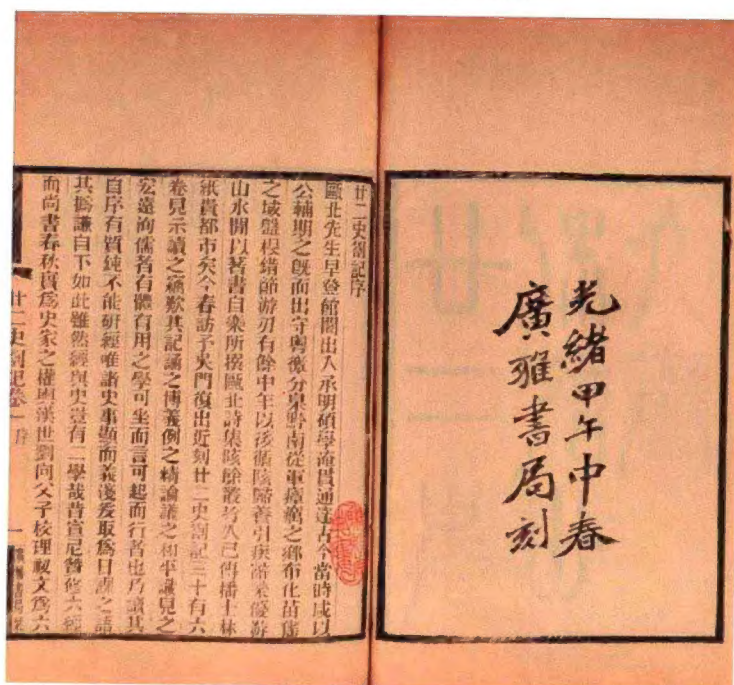 光緒甲午中春
廣雅書局刻
廿二史劄記序
甌北先生早登館閣出入承明碩學淹貫通達古今當時咸以
公輔期之既而出守粵徼分臬黔南從軍瘴癘之鄉布化苗猺
之域盤根錯節游刃有餘中年以後循陔歸養引疾辭榮優游
山水閒以著書自樂所撰甌北詩集陔餘叢考久已傳播士林
紙貴都市矣今春訪予吳門復出近刻廿二史劄記三十有六
卷見示讀之竊歎其記誦之博義例之精論議之和平識見之
宏遠洵儒者有體有用之學可坐而言可起而行者也乃讀其
自序有質鈍不能研經唯諸史事顯而義淺爰取爲日課之語
其撝謙自下如此雖然經與史豈有二學哉昔宣尼贊修六經
而尚書春秋實爲史家之權輿漢世劉向父子校理祕文爲六
廿二史劄記卷一 序
一
廣雅書局栞